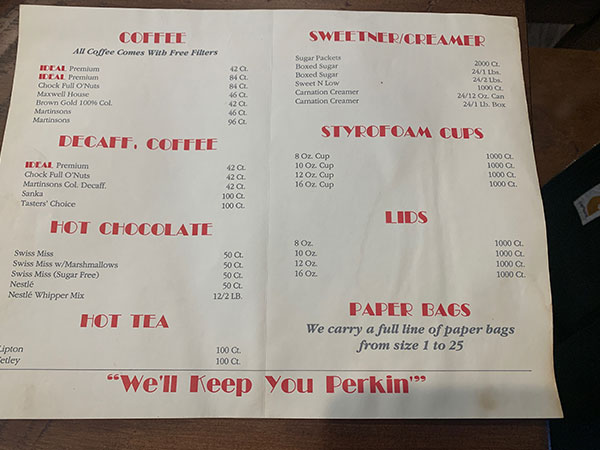 COFFEE
All Coffee Comes With Free Filters
IDEAL Premium 42 Ct.
IDEAL Premium 84 Ct.
Chock Full O'Nuts 84 Ct.
Maxwell House 46 Ct.
Brown Gold 100% Col. 42 Ct.
Martinsons 46 Ct.
Martinsons 96 Ct.
DECAFF, COFFEE
IDEAL Premium 42 Ct.
Chock Full O'Nuts 42 Ct.
Martinsons Col. Decaff. 42 Ct.
Sanka 100 Ct.
Tasters' Choice 100 Ct.
HOT CHOCOLATE
Swiss Miss 50 Ct.
Swiss Miss w/Marshmallows 50 Ct.
Swiss Miss (Sugar Free) 50 Ct.
Nestlé 50 Ct.
Nestlé Whipper Mix 12/2 LB.
HOT TEA
Lipton 100 Ct.
Tetley 100 Ct.
SWEETNER/CREAMER
Sugar Packets 2000 Ct.
Boxed Sugar 24/1 Lbs.
Boxed Sugar 24/2 Lbs.
Sweet N Low 1000 Ct.
Carnation Creamer 24/12 Oz. Can
Carnation Creamer 24/1 Lb. Box
STYROFOAM CUPS
8 Oz. Cup 1000 Ct.
10 Oz. Cup 1000 Ct.
12 Oz. Cup 1000 Ct.
16 Oz. Cup 1000 Ct.
LIDS
8 Oz. 1000 Ct.
10 Oz. 1000 Ct.
12 Oz. 1000 Ct.
16 Oz. 1000 Ct.
PAPER BAGS
We carry a full line of paper bags
from size 1 to 25
"We'll Keep You Perkin'"